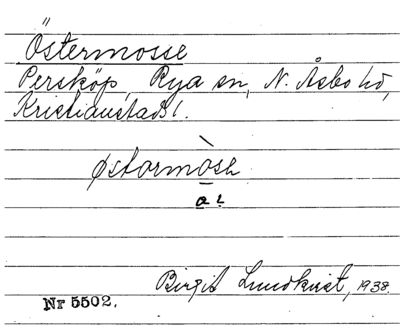 Östermosse
Persköp, Rya sn, N. Åsbo hd,
Kristianstads l.
østormòsh
a!
Birgit Lundkvist, 1938.
Nr 5502.